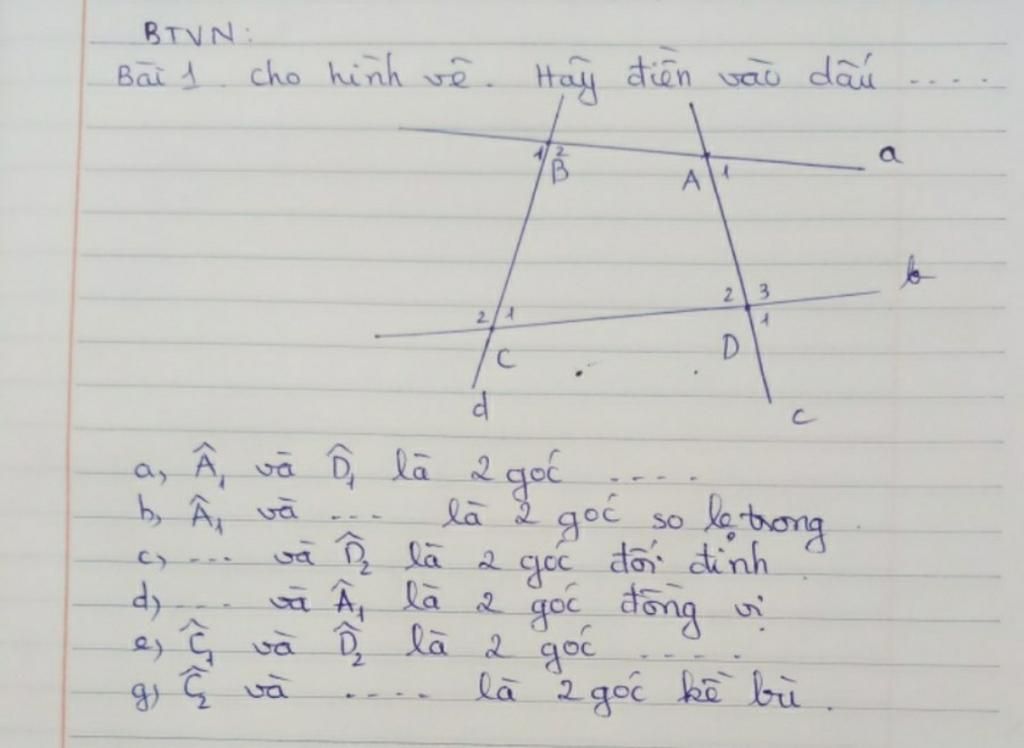 BTVN:
Bài 1. cho hình vẽ. Hãy điền vào dấu ....
a
1 2
B
A 1
b
2 3
2 1
1
D
C
d
c
a, Â₁ và D̂₁ là 2 góc ....
b, Â₁ và ... là 2 góc so le trong.
c, ... và D̂₂ là 2 góc đối đỉnh
d, .... và Â₁ là 2 góc đồng vị
e, Ĉ₁ và D̂₂ là 2 góc .....
g, Ĉ₂ và .... là 2 góc kề bù.